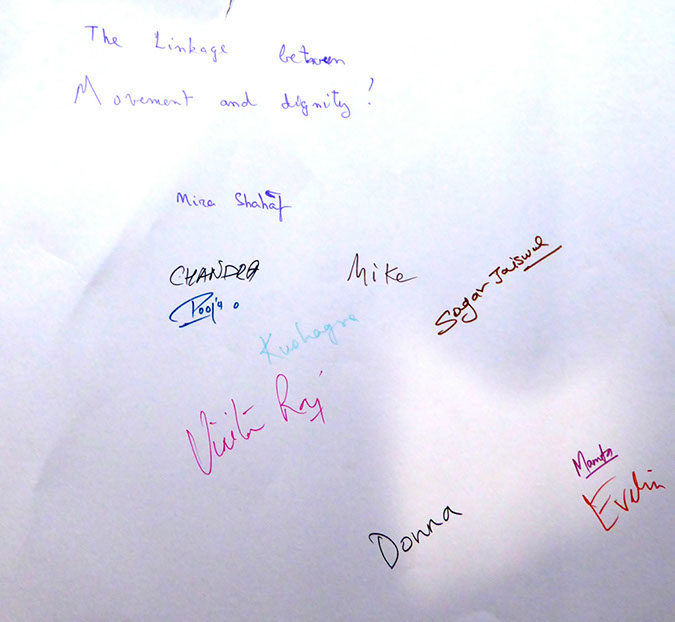 The Linkage between
Movement and dignity!
Mira Shahaf
CHANDRA
Mike
Sagar Jaiswal
Pooja
Kushagra
Raj
Mamta
Evelin
Donna